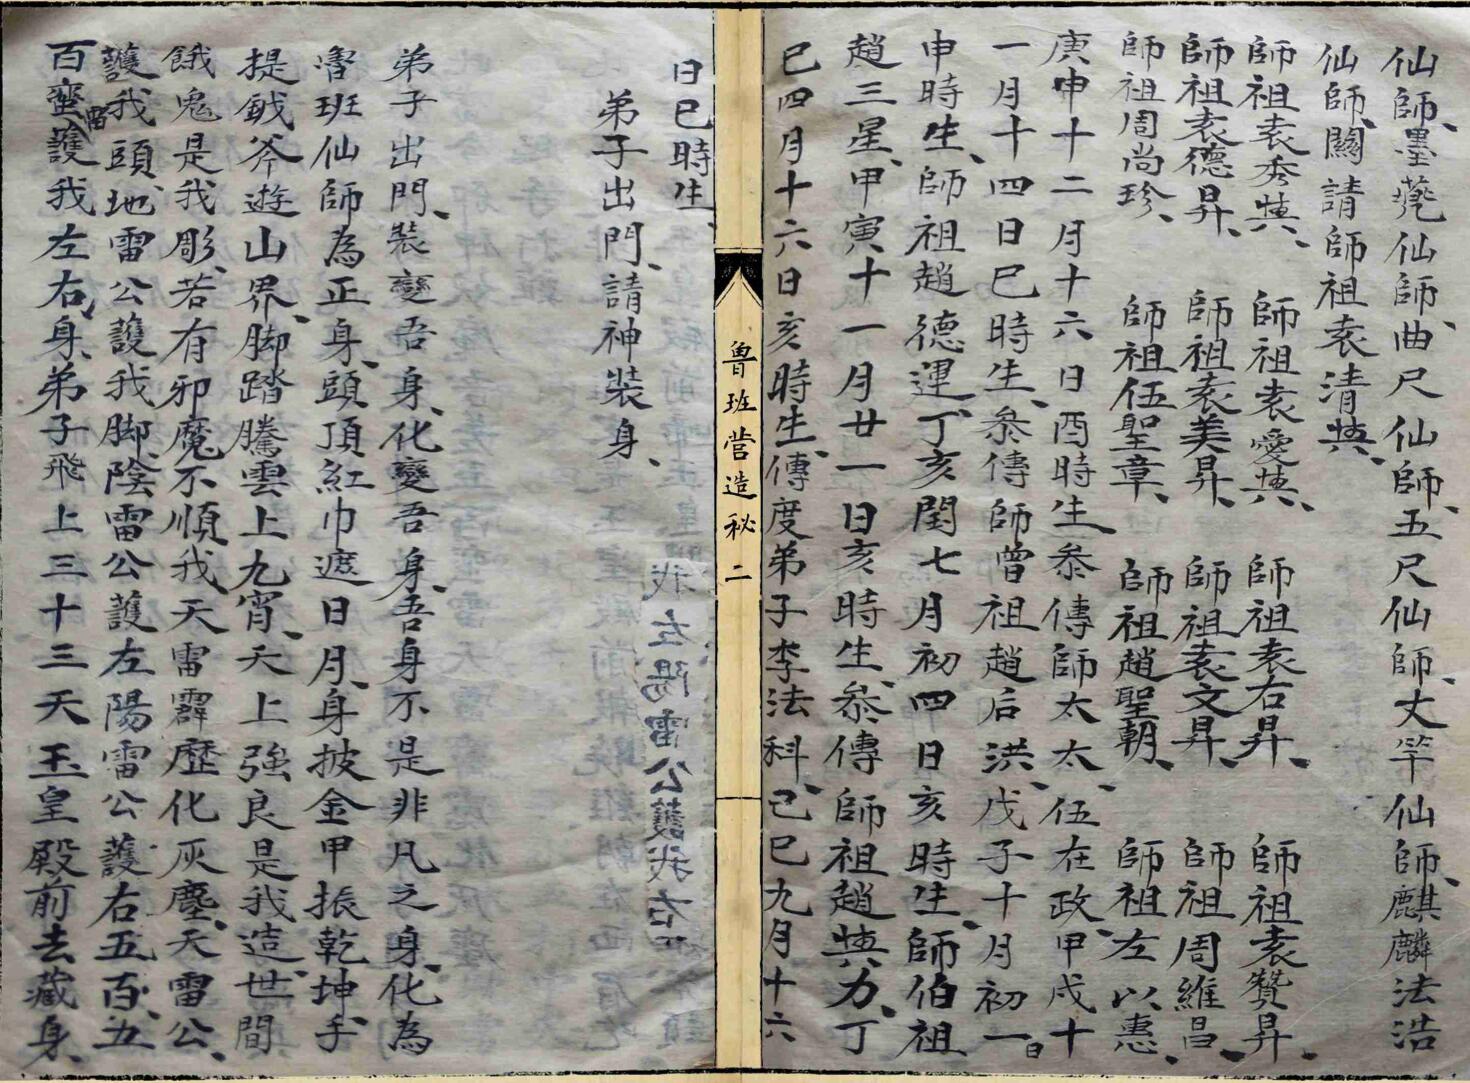 仙師、墨蓢仙師、曲尺仙師、五尺仙師、丈竿仙師、麒麟法浩
仙師、關請師祖袁清典、
師祖袁秀典、 師祖袁愛典、 師祖袁右昇、 師祖袁贊昇、
師祖袁德昇、 師祖袁美昇、 師祖袁文昇、 師祖周維昌、
師祖周尚珍、 師祖伍聖章、 師祖趙聖朝、 師祖左以惠、
庚申十二月十六日酉時生、叅傳師太太、伍在政、甲戌十
一月十四日巳時生、叅傳師曾祖趙后洪、戊子十月初一日
申時生、師祖趙德運、丁亥閏七月初四日亥時生、師伯祖
趙三星、甲寅十一月廿一日亥時生、叅傳師祖趙典力、丁
巳四月十六日亥時生、傳度弟子李法科、己巳九月十六
魯班营造秘二
日巳時生、
弟子出門、請神裝身、
弟子出門、裝變吾身、化變吾身、吾身不是非凡之身、化為
魯班仙師為正身、頭頂紅巾遮日月、身披金甲振乾坤、手
提鉞斧遊山界、脚踏騰雲上九宵、天上強良是我造、世間
餓鬼是我彫、若有邪魔不順我、天雷霹歷化灰塵、天雷公、
護我頭、地雷公護我脚、陰雷公護左陽雷公護右五百、五
百蛮雷護我左右身、弟子飛上三十三天玉皇殿前去藏身、